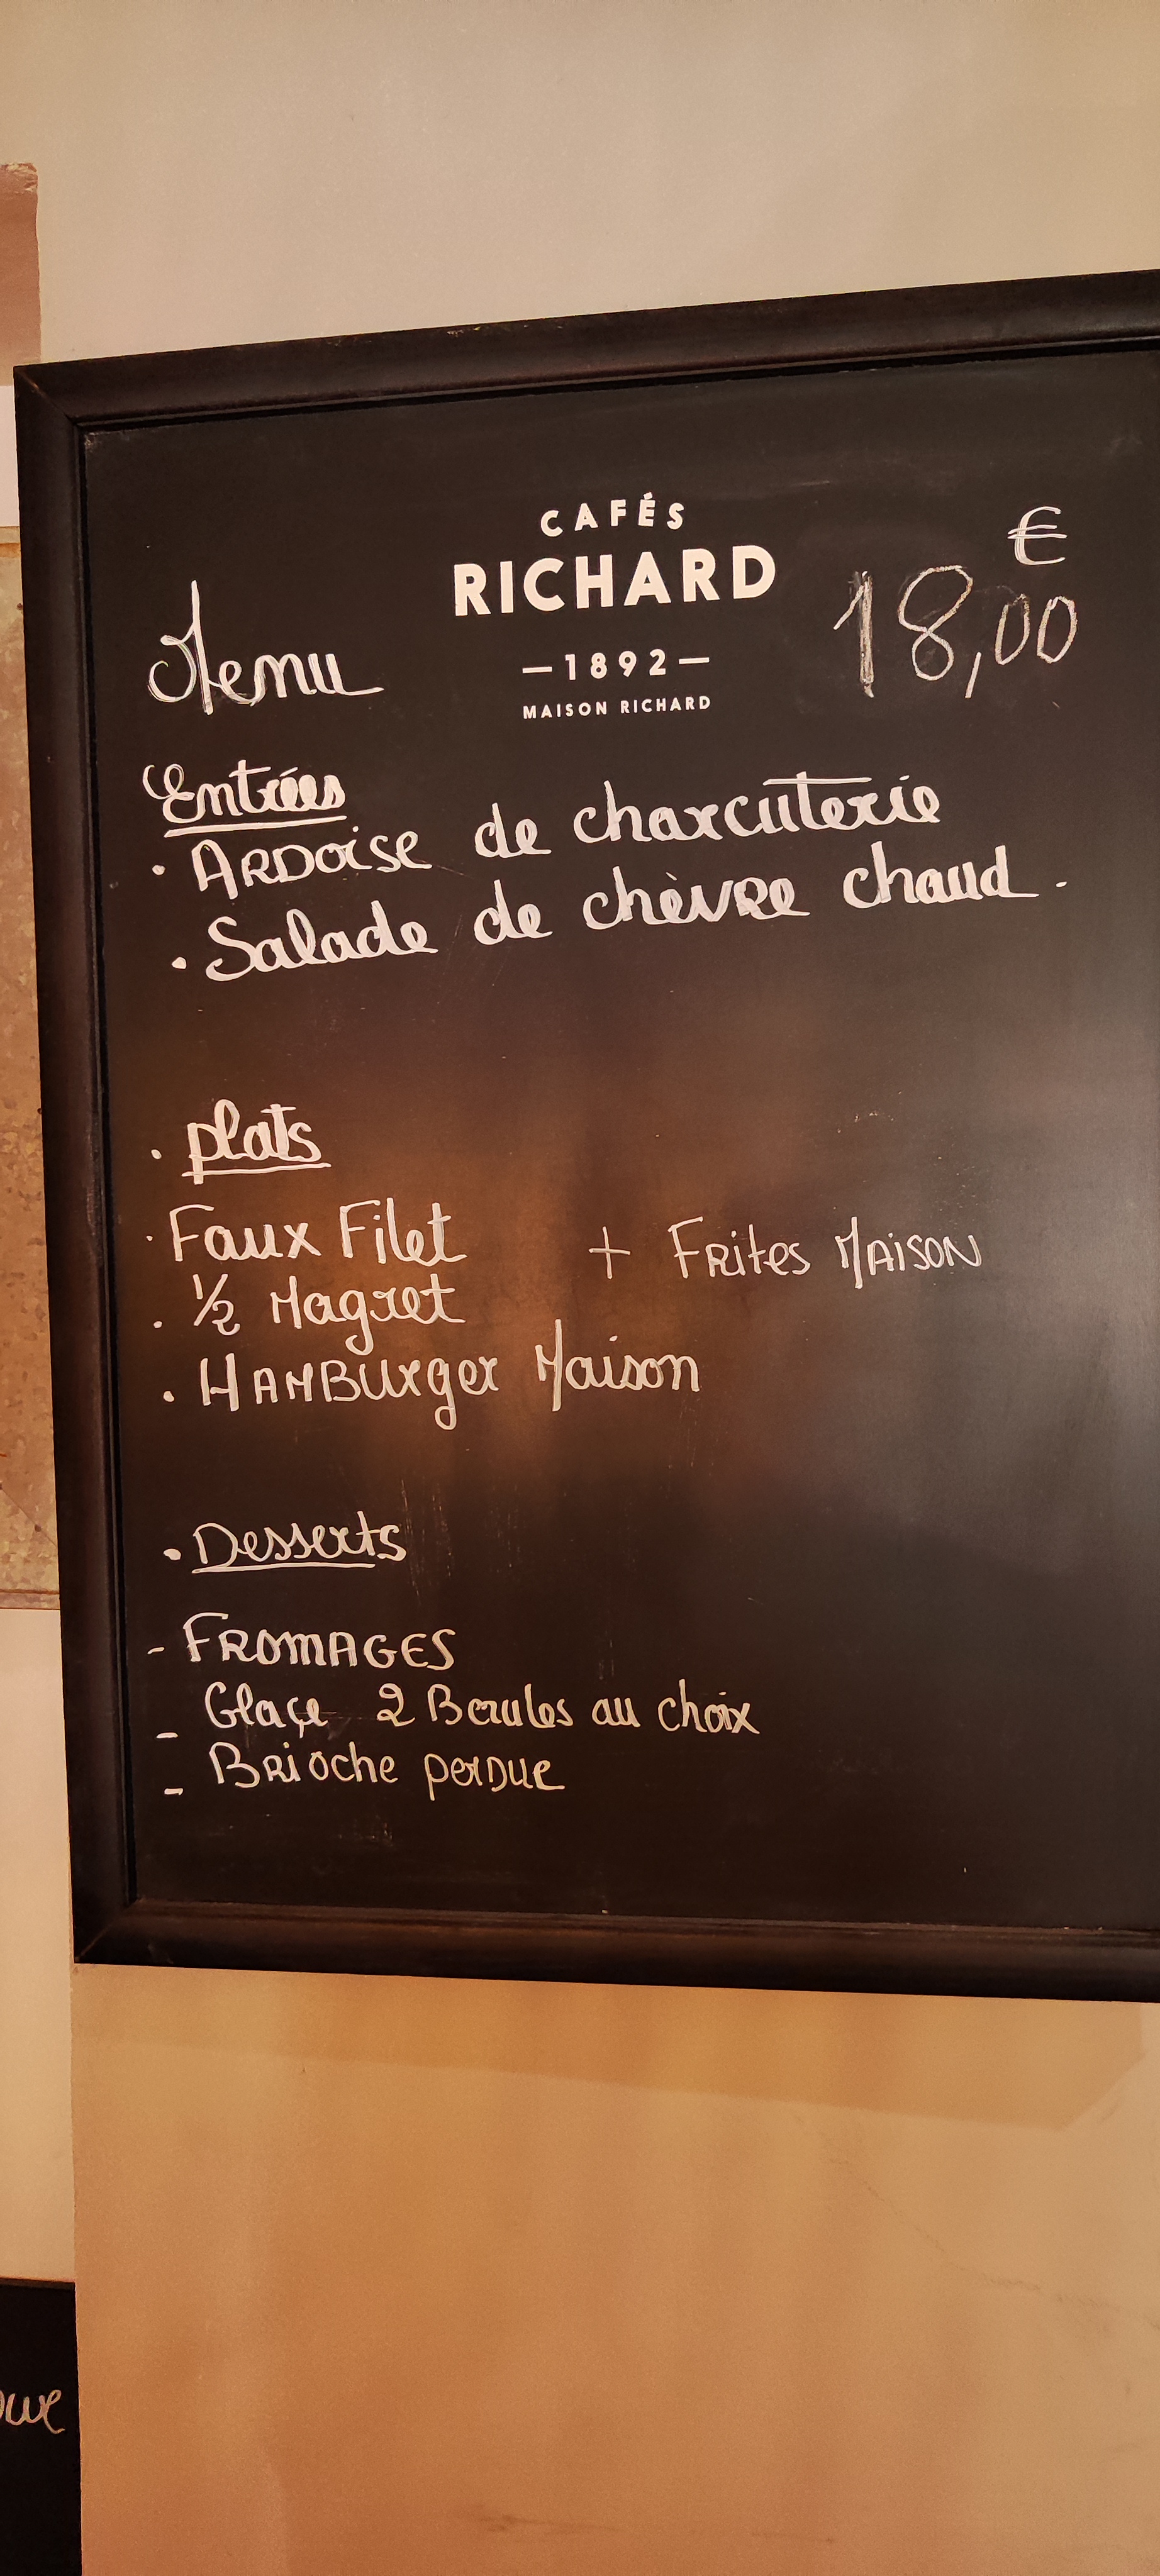 CAFÉS
RICHARD
— 1892 —
MAISON RICHARD
Menu
€
18,00
Entrées
· ARDOise de charcuterie
· Salade de chèvre chaud.
· plats
· Faux Filet + FRites MAISON
. ½ Magret
. HAMBUrger Maison
· Desserts
- FROMAGES
- Glaçe 2 Boules au choix
- BRioche perDue